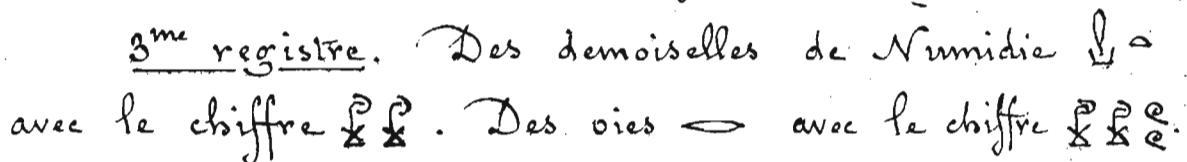 3me registre. Des demoiselles de Numidie
avec le chiffre . Des oies avec le chiffre .